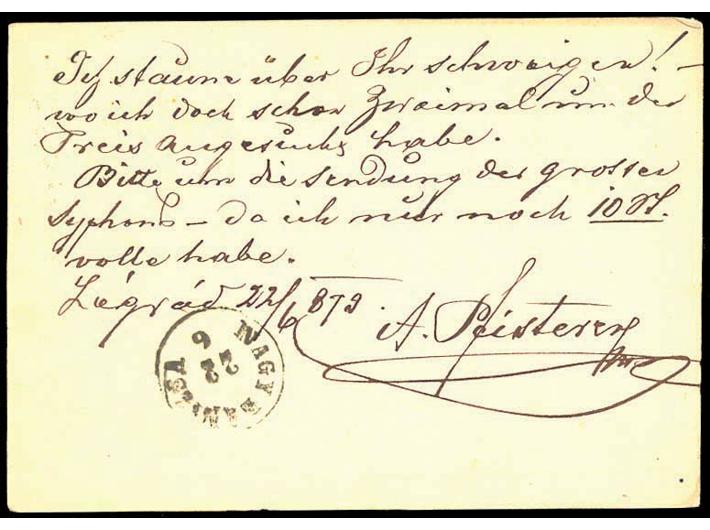 Ich staune über Ihr schweigen! –
wo ich doch schon Zweimal um den
Preis angesucht habe.
Bitte um die Sendung der grossen
Syphons – da ich nur noch 10 St.
volle habe.
Légrád 22/6 879
A. Pfisterer
NAGY KANIZSA
22
6